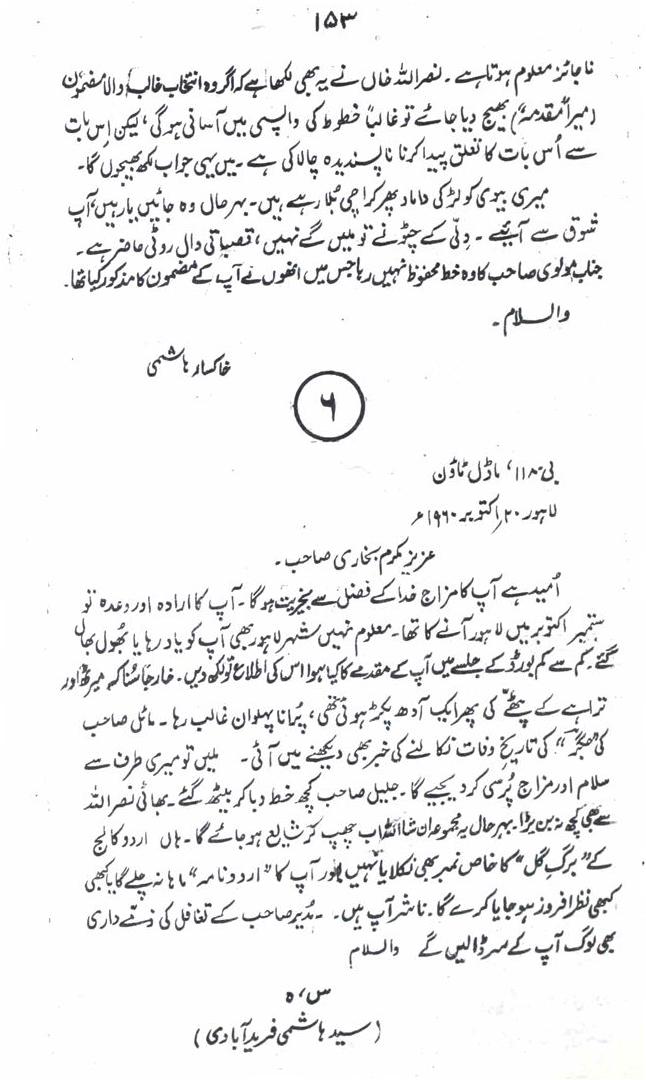 ۱۵۳
ناجائز معلوم ہوتا ہے۔ نصر اللہ خاں نے یہ بھی لکھا ہے کہ اگر وہ انتخاب غالب والا مضمون
(میرا مقدمہ) بھیج دیا جائے تو غالباً خطوط کی واپسی میں آسانی ہوگی، لیکن اس بات
سے اُس بات کا تعلق پیدا کرنا ناپسندیدہ چالاکی ہے۔ میں یہی جواب لکھ بھیجوں گا۔
میری بیوی کو لڑکی داماد پھر کراچی بُلا رہے ہیں۔ بہر حال وہ جائیں یا رہیں، آپ
شوق سے آئیے۔ دِلّی کے چٹورنے تو ملیں گے نہیں، قصباتی دال روٹی حاضر ہے۔
جناب مولوی صاحب کا وہ خط محفوظ نہیں رہا جس میں انھوں نے آپ کے مضمون کا مذکور کیا تھا۔
والسلام۔
خاکسار ہاشمی
۶
بی۔۱۱۸، ماڈل ٹاؤن
لاہور ۲۰ اکتوبر ۱۹۶۰ء
عزیز مکرم بخاری صاحب۔
اُمید ہے آپ کا مزاج خدا کے فضل سے بخیریت ہوگا۔ آپ کا ارادہ اور وعدہ تو
ستمبر اکتوبر میں لاہور آنے کا تھا۔ معلوم نہیں شہر لاہور بھی آپ کو یاد رہا یا بھول بھال
گئے۔ کم سے کم بورڈ کے جلسے میں آپ کے مقدمے کا کیا ہوا اس کی اطلاع تو لکھ دیں۔ خارجاً سُنا کہ میرٹھ اور
تراہے کے پٹھّے کی پھر ایک آدھ پکڑ ہوئی تھی، پُرانا پہلوان غالب رہا۔ مائل صاحب
کی "جگر" کی تاریخ وفات نکالنے کی خبر بھی دیکھنے میں آئی۔ ملیں تو میری طرف سے
سلام اور مزاج پُرسی کر دیجیے گا۔ جلیل صاحب کچھ خط دبا کر بیٹھ گئے۔ بھائی نصر اللہ
سے بھی کچھ نہ بن پڑا۔ بہر حال یہ مجموعہ ان شاء اللہ اب چھپ کر شایع ہو جائے گا۔ ہاں اردو کالج
کے "برگِ گل" کا خاص نمبر بھی نکلا یا نہیں اور آپ کا "اردو نامہ" ماہانہ چلے گا یا کبھی
کبھی نظر افروز ہو جایا کرے گا۔ ناشر آپ ہیں۔ ۔ مُدیر صاحب کے تغافل کی ذمّے داری
بھی لوگ آپ کے سر ڈالیں گے والسلام
س، ہ
(سید ہاشمی فریدآبادی)